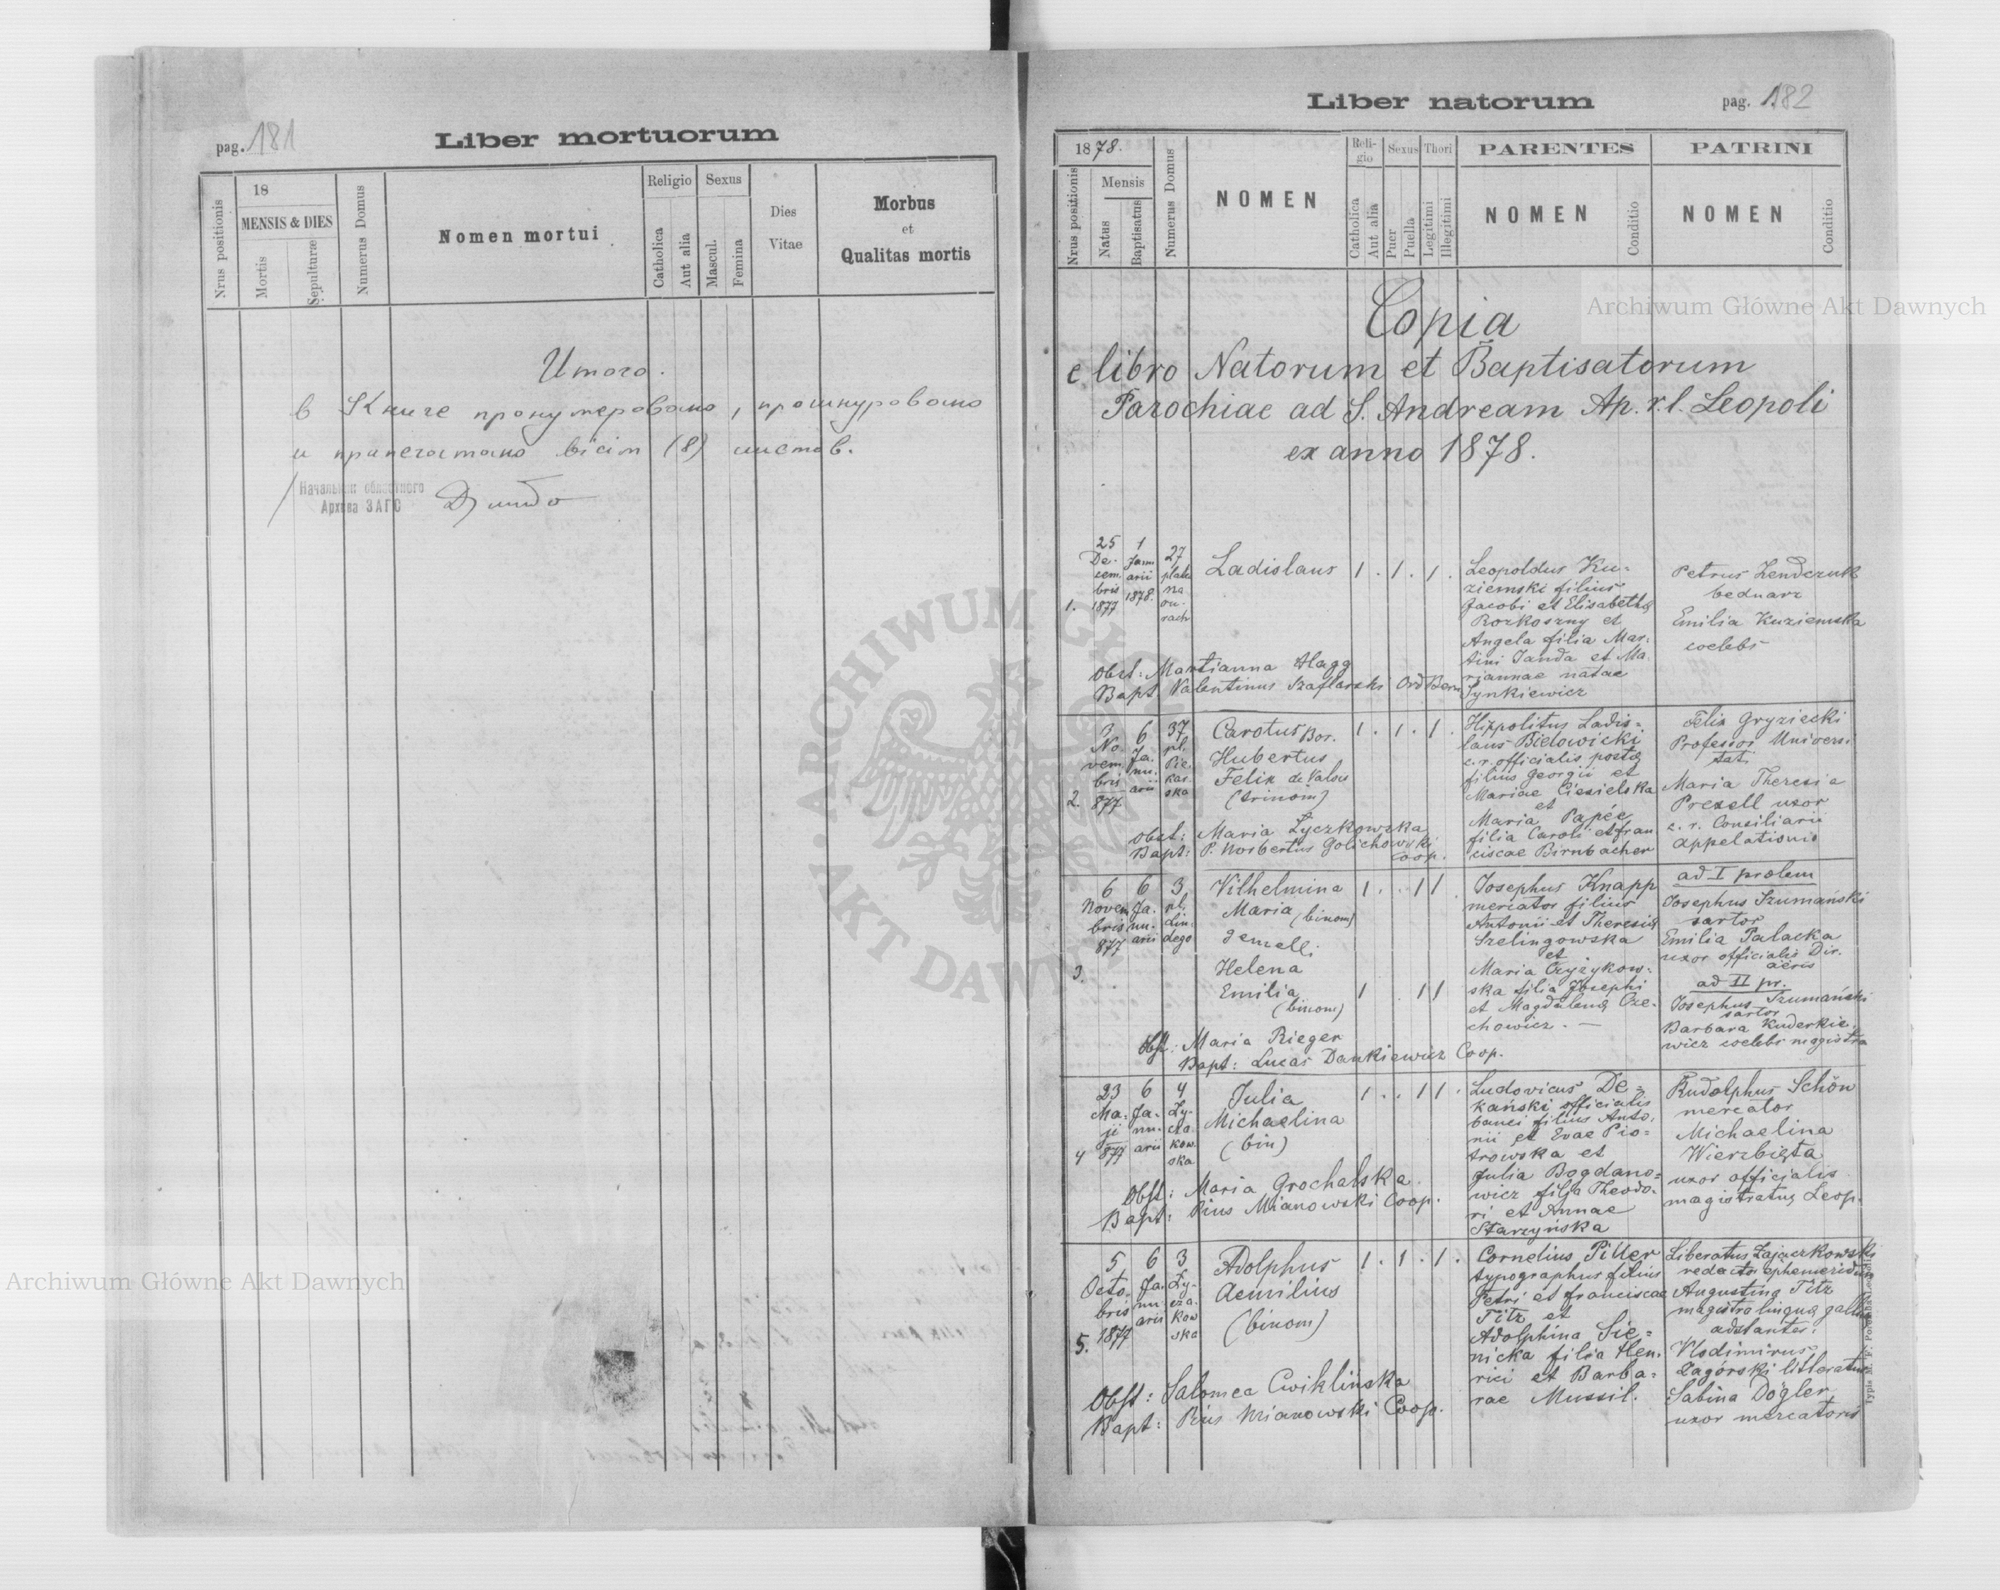 pag. 181
Liber mortuorum
Nrus positionis
18
MENSIS & DIES
Mortis
Sepulturæ
Numerus Domus
Nomen mortui
Religio
Catholica
Aut alia
Sexus
Mascul.
Femina
Dies
Vitae
Morbus
et
Qualitas mortis
Итого.
в Книге пронумеровано, прошнуровано
и припечатано вісім (8) листов.
Начальник областного
Архива ЗАГС
Liber natorum
pag. 182
1878.
Nrus positionis
Mensis
Natus
Baptisatus
Numerus Domus
NOMEN
Reli-
gio
Catholica
Aut alia
Sexus
Puer
Puella
Thori
Legitimi
Illegitimi
PARENTES
NOMEN
Conditio
PATRINI
NOMEN
Conditio
Copia
e libro Natorum et Baptisatorum
Parochiae ad S. Andream Ap. r.l. Leopoli
ex anno 1878.
1.
25
De-
cem
bris
1877
1
Janu
arii
1878.
27
Ladislaus
1 . 1 . 1 .
Leopoldus Ku-
ziemski filius
Jacobi et Elisabethæ
Rozkoszny et
Angela filia Mar-
tini Janda et Ma
riannae natae
Synkiewicz
Petrus Zendczuk
bednarz
Emilia Kuziemska
coelebs
Obst: Martianna Hagg
Bapt Valentinus Szaflarski Ord Bern
2.
No
vem
bris
877
6
Ja-
nu-
arii
37
pl.
Pie
kar
ska
Carolus Bor.
Hubertus
Felix de Valois
(trinom)
1 . 1 . 1 .
Hippolitus Ladis-
laus Bielowicki
c.r. officialis postæ
filius Georgii et
Mariae Ciesielska
et
Maria Papée
filia Caroli et fran
ciscae Birnbacher
Felix Gryziecki
Professor Universi
tati
Maria Theresia
Prexell uxor
c. r. Consiliarii
appelationis
Obst: Maria Łyczkowska
Bapt: P. Norbertus Golichowski
Coop.
3.
6
Novem
bris
877
6
Ja-
nu-
arii
3
pl.
Lin
dego
Vilhelmina
Maria (binom)
gemelli
Helena
Emilia
(binom)
1 . . 1 1
1 . 1 1
Josephus Knapp
mercator filius
Antonii et Theresiæ
Szelingowska
et
Maria Czyżykow-
ska filia Josephi
et Magdalenæ Orze-
chowicz. —
ad I prolem
Josephus Szumański
sartor
Emilia Palacka
uxor officialis Dir.
aeris
ad II pr.
Josephus Szumański
sartor
Barbara Kuderkie-
wicz coelebs magistra
Obst: Maria Rieger
Bapt: Lucas Dankiewicz Coop.
4
23
Ma-
ji
877
6
Ja-
nu-
arii
4
Ły-
cza
kow
ska
Julia
Michaelina
(bin)
1 . . 1 1 .
Ludovicus De-
kański officialis
banci filius Anto-
nii et Evae Pio-
trowska et
Julia Bogdano-
wicz filja Theodo-
ri et Annae
Starzyńska
Rudolphus Schön
mercator
Michaelina
Wierzbięta
uxor officialis
magistratus Leop.
Obst: Maria Grochalska
Bapt: Pius Mianowski Coop.
5.
5
Octo-
bris
1877
6
Ja
nu
arii
3
Ły-
cza-
kow
ska
Adolphus
Aemilius
(binom)
1 . 1 . 1 .
Cornelius Piller
typographus filius
Petri et franciscae
Titz et
Adolphina Sie-
nicka filia Hen-
rici et Barba-
rae Mussil.
Liberatus Zajączkowski
redactor ephemeridum
Augustina Titz
magistra linguæ gallicæ
adstantes:
Vladimirus
Zagórski litteratus
Sabina Dögler
uxor mercatoris
Obst: Salomea Cwiklińska
Bapt: Pius Mianowski Coop.
Archiwum Główne Akt Dawnych
Archiwum Główne Akt Dawnych
ARCHIWUM GŁÓWNE AKT DAWNYCH